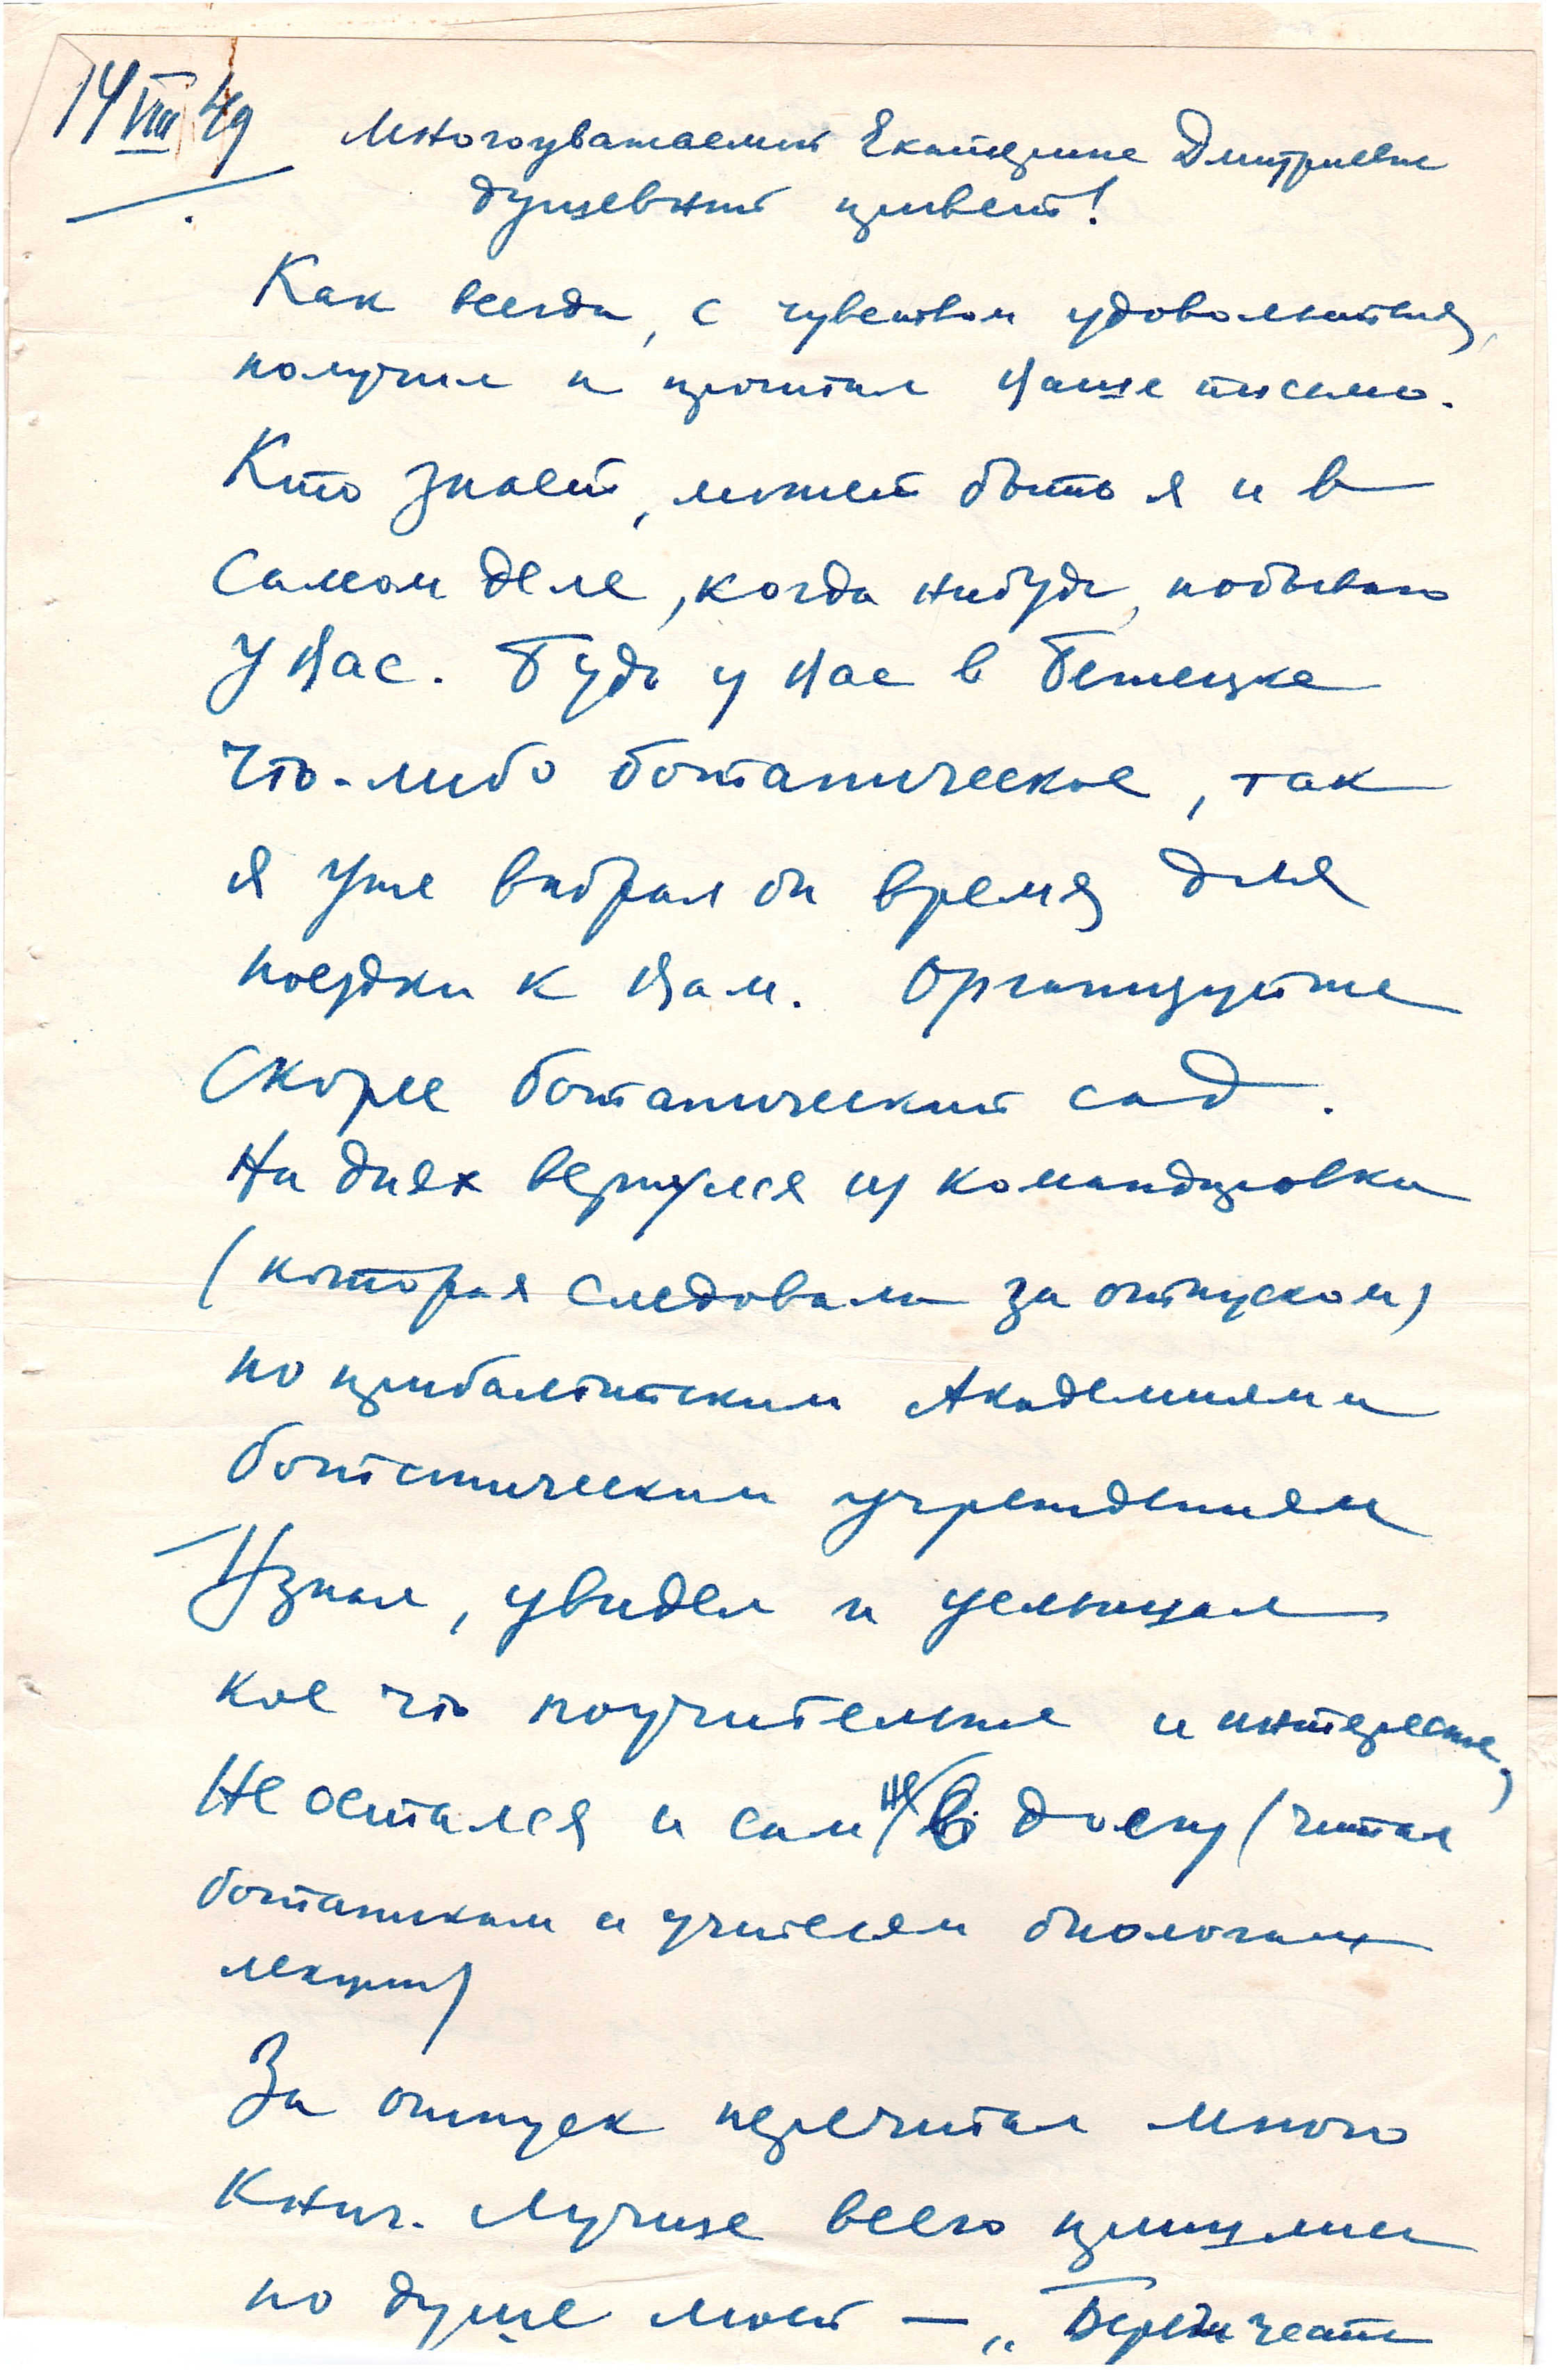 14 VIII 49
Многоуважаемой Екатерине Дмитриевне
душевный привет!
Как всегда, с чувством удовольствия,
получил и прочитал Ваше письмо.
Кто знает, может быть я и в
самом деле, когда нибудь, побываю
у Вас. Будь у Вас в Бежецке
что-либо ботаническое, так
я уже выбрал бы время для
поездки к Вам. Организуйте
скорее ботанический сад.
На днях вернулся из командировки
(которая следовала за отпуском)
по прибалтийским Академиям и
ботаническим учреждениям
Узнал, увидел и услышал
кое что поучительное и интересное,
Не остался и сам же в долгу (читал
ботаникам и учителям биологам
лекции)
За отпуск перечитал много
книг. Лучше всего пришлись
по душе моей — „Береги честь